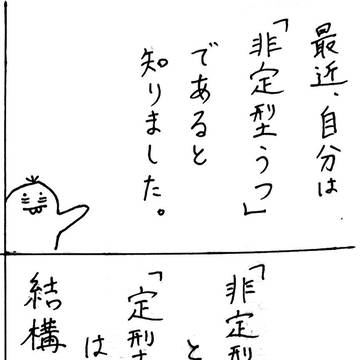 最近、自分は
「非定型うつ」
であると
知りました。
「非定型
と
「定型
は
結構